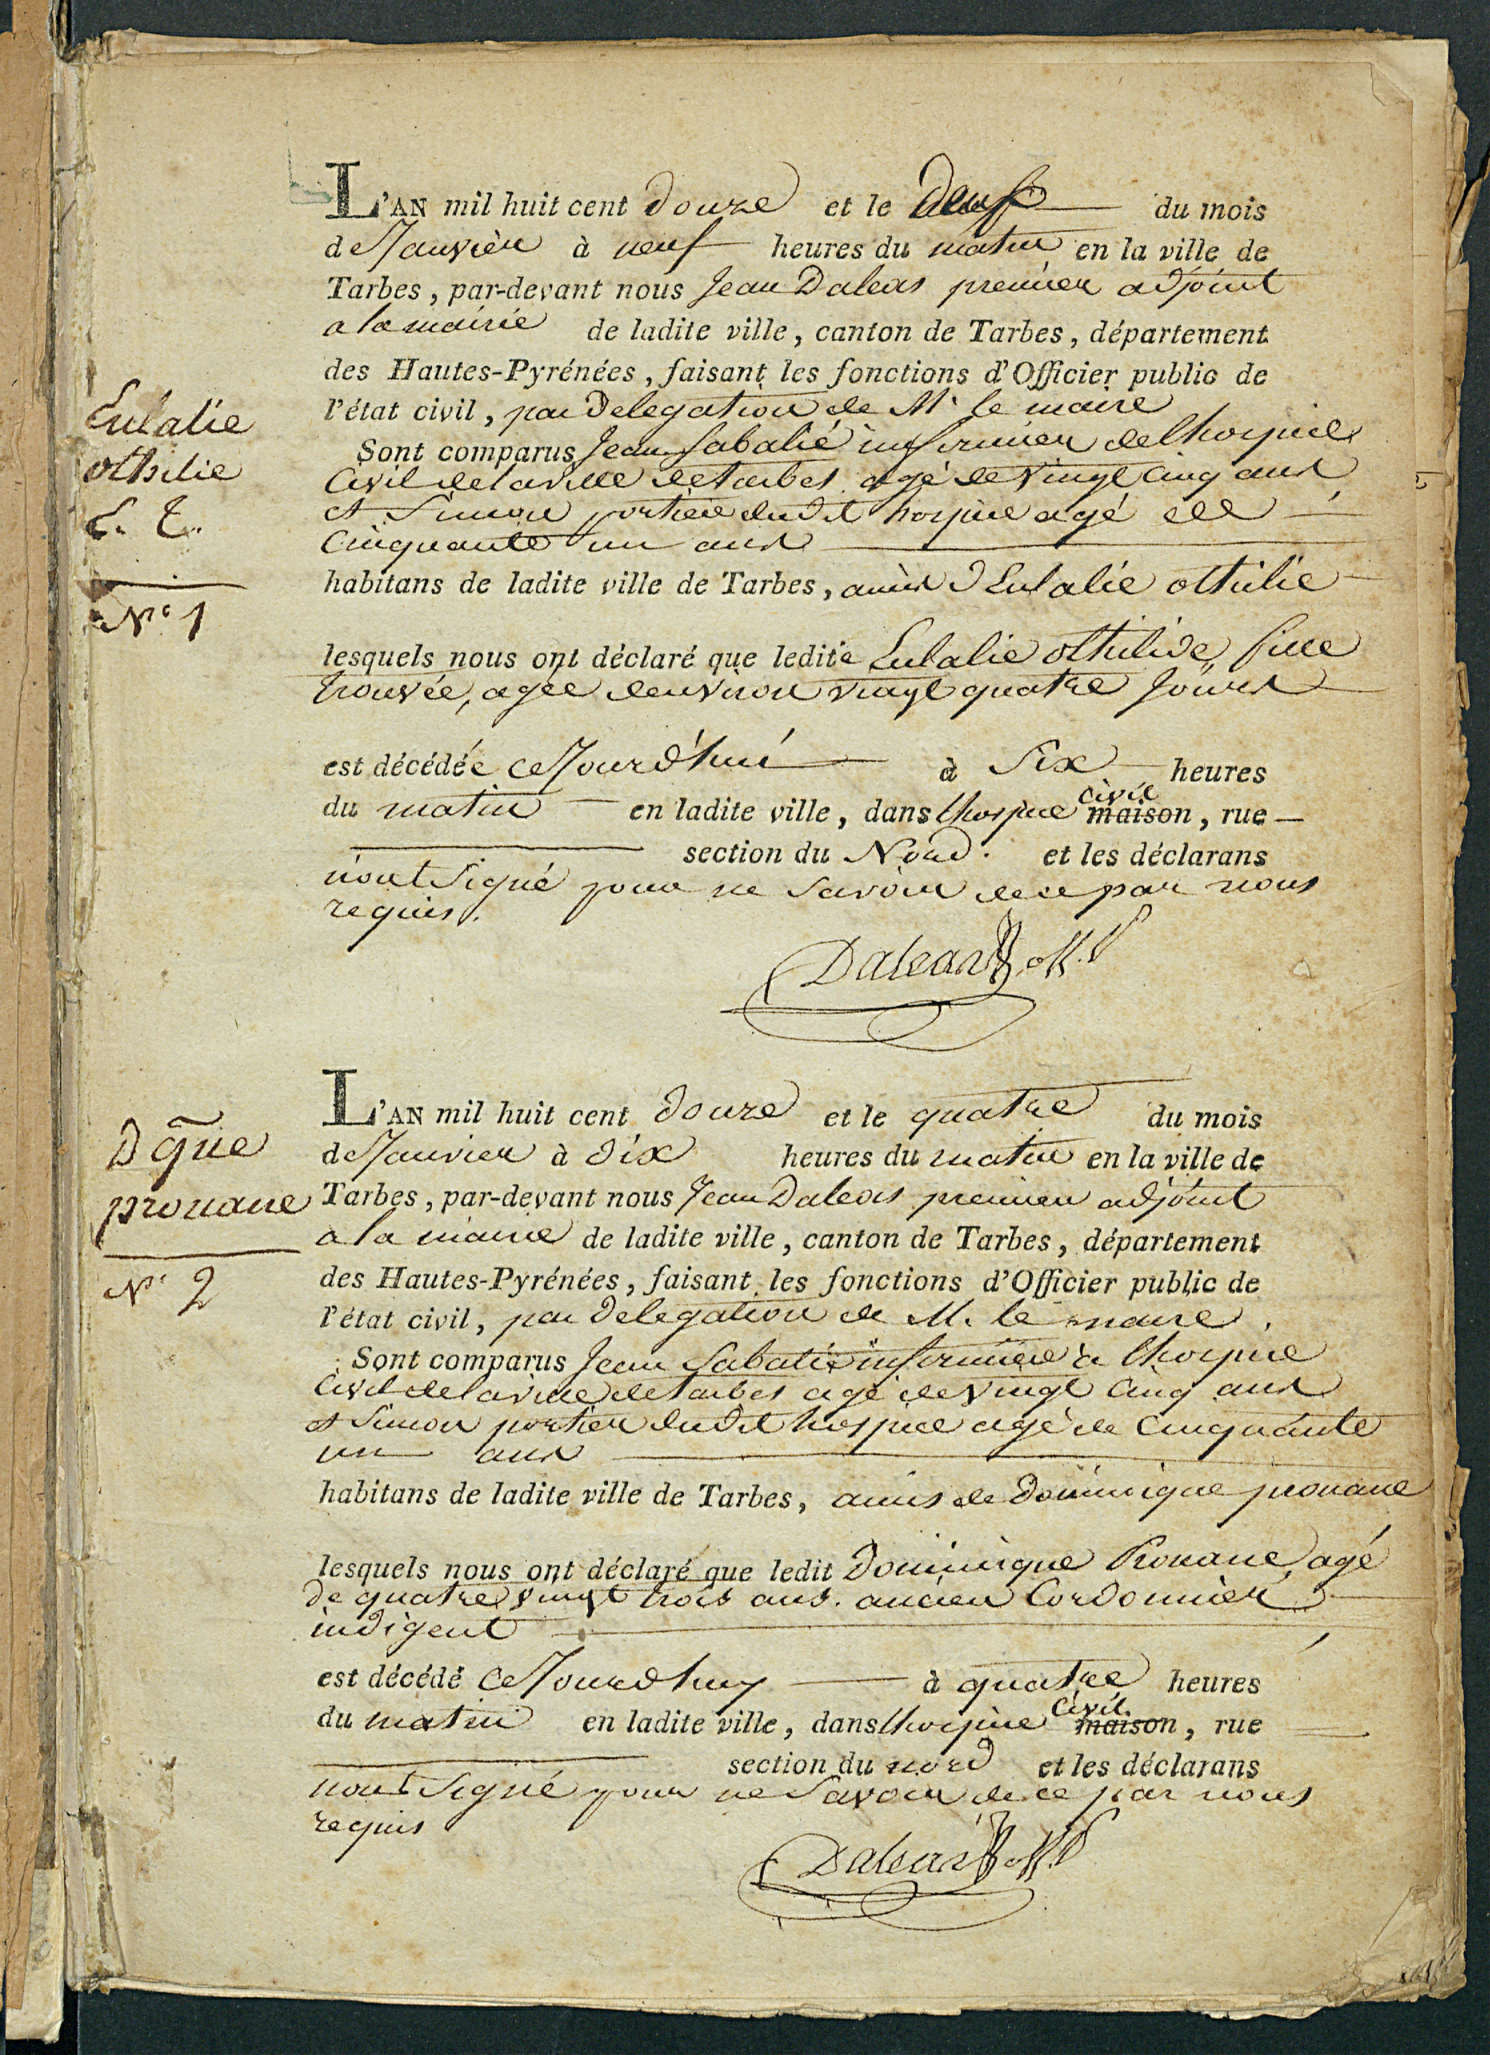 Eulalie
othilie
E. T.
N.° 1
L'AN mil huit cent douze et le deux du mois
de Janvier à neuf heures du matin en la ville de
Tarbes, par-devant nous Jean Daleas premier adjoint
a la mairie de ladite ville, canton de Tarbes, département
des Hautes-Pyrénées, faisant les fonctions d'Officier public de
l'état civil, par delegation de Mr. le maire
Sont comparus Jean Sabatié infirmier de lhospice
Civil de la ville de tarbes agé de vingt Cinq ans
et Simon portier dudit hospice agé de
Cinquante un ans
habitans de ladite ville de Tarbes, amis d Eulalie othilie
lesquels nous ont déclaré que ledite Eulalie othilide, fille
trouvée, agée denviron vingt quatre Jours
est décédée ce Jourd'hui à Six heures
du matin en ladite ville, dans lhospice civil maison, rue
section du Nord. et les déclarans
nont Signé pour ne Savoir de ce par nous
requis.
Daleas off. P
Dque
prouane
N.° 2
L'AN mil huit cent douze et le quatre du mois
de Janvier à dix heures du matin en la ville de
Tarbes, par-devant nous Jean Daleas premier adjoint
a la mairie de ladite ville, canton de Tarbes, département
des Hautes-Pyrénées, faisant les fonctions d'Officier public de
l'état civil, par delegation de M. le maire.
Sont comparus Jean Sabatié infirmier a lhospice
Civil de la ville de tarbes agé de vingt Cinq ans
et Simon portier dudit hospice agé de Cinquante
un ans
habitans de ladite ville de Tarbes, amis de dominique prouane
lesquels nous ont déclaré que ledit dominique Prouane, agé
de quatre vingt trois ans. ancien Cordonnier
indigent
est décédé ce Jourdhuy à quatre heures
du matin en ladite ville, dans lhospice Civil maison, rue
section du nord et les déclarans
nont Signé pour ne Savoir de ce par nous
requis
Daleas off. P